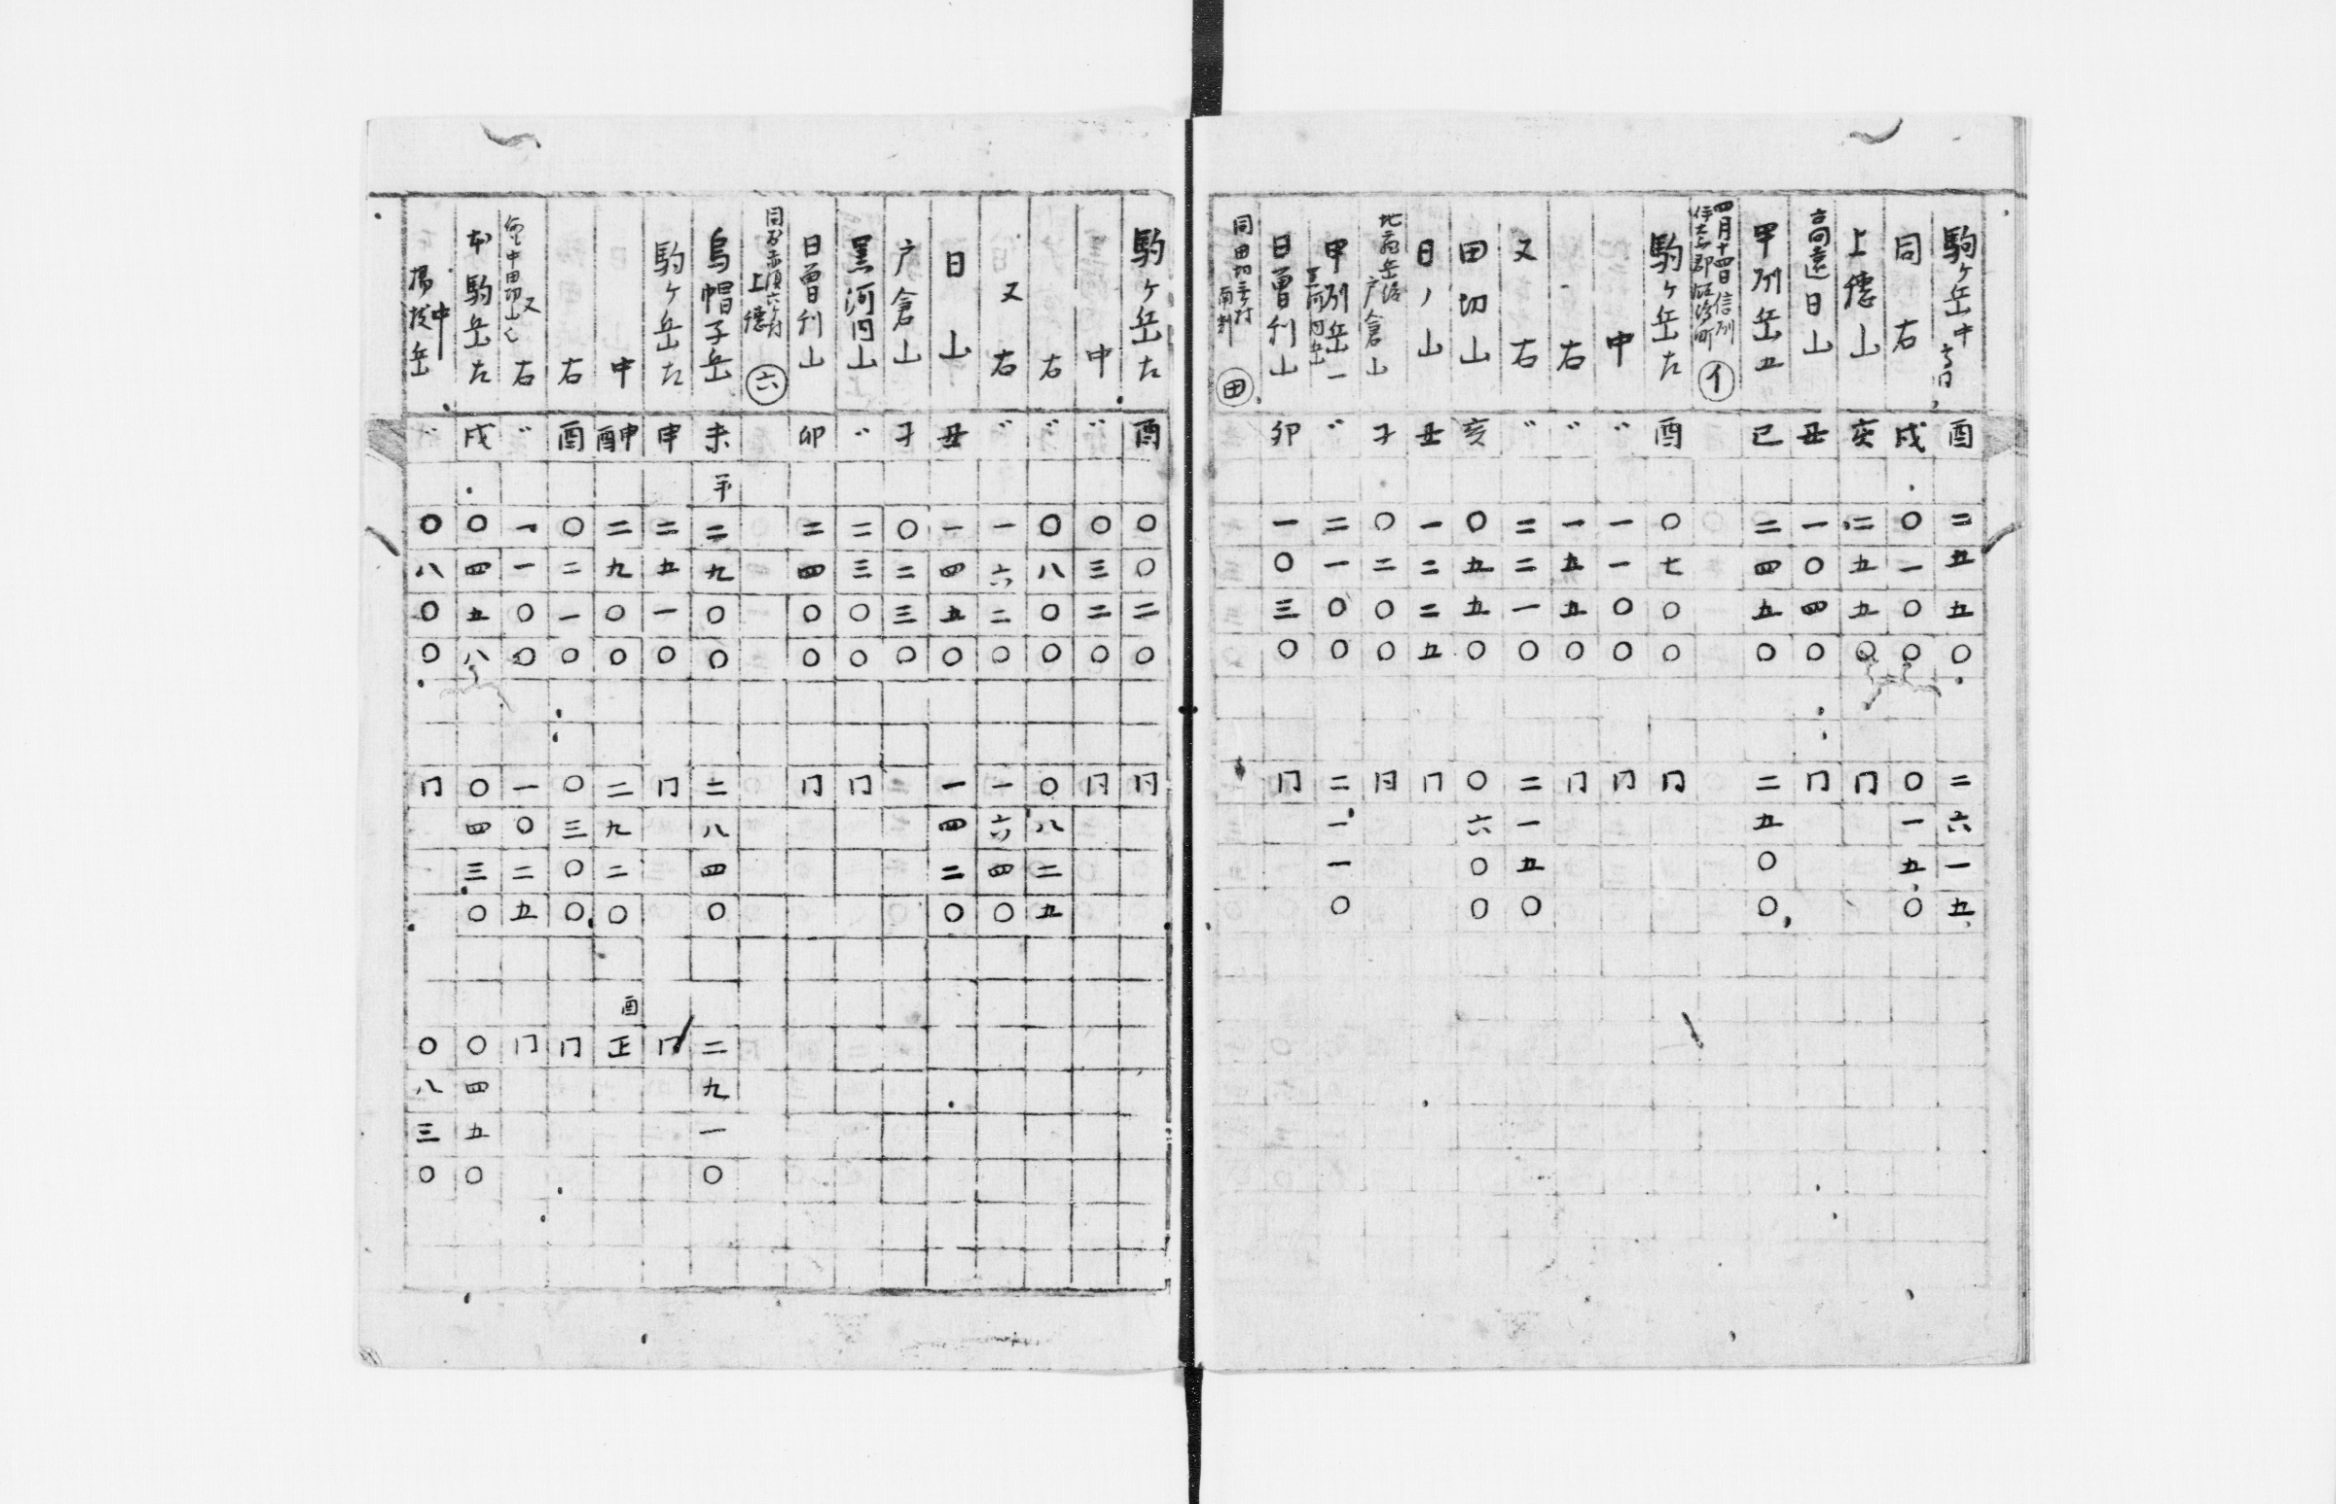 駒ケ岳中 酉 二五五〇 二六一五
同右 戌 〇一〇〇 〇一五〇
上德山 亥 二五五〇 冂
高遠日山 丑 一〇四〇 冂
甲刕岳五 巳 二四五〇 二五〇〇
四月十四日信刕
伊奈郡 町 イ
駒ケ岳左 酉 〇七〇〇 冂
中 〃 一一〇〇 冂
右 〃 一五五〇 冂
又右 〃 二二一〇 二一五〇
田切山 亥 〇五五〇 〇六〇〇
日ノ山 丑 一二二五 冂
戸倉山 子 〇二〇〇 冂
甲刕岳一 〃 二一〇〇 二一一〇
日曽利山 卯 一〇三〇 冂
同田切 村 田
駒ケ岳左 酉 〇〇二〇 冂
中 〃 〇三二〇 冂
右 〃 〇八〇〇 〇八二五
又右 〃 一六二〇 一六四〇
日山 丑 一四五〇 一四二〇
戸倉山 子 〇二三〇
黒河内山 〃 二三〇〇 冂
日曽利山 卯 二四〇〇 冂
同 赤須 村 上穗 六
烏帽子岳 未 二九〇〇 二八四〇 二九一〇
駒ケ岳左 申 二五一〇 冂 冂
中 申酉 二九〇〇 二九二〇 酉正
右 酉 〇二一〇 〇三〇〇 冂
又右 〃 一一〇〇 一〇二五 冂
本駒岳左 戌 〇四五八 〇四三〇 〇四五〇
中 岳 〃 〇八〇〇 冂 〇八三〇